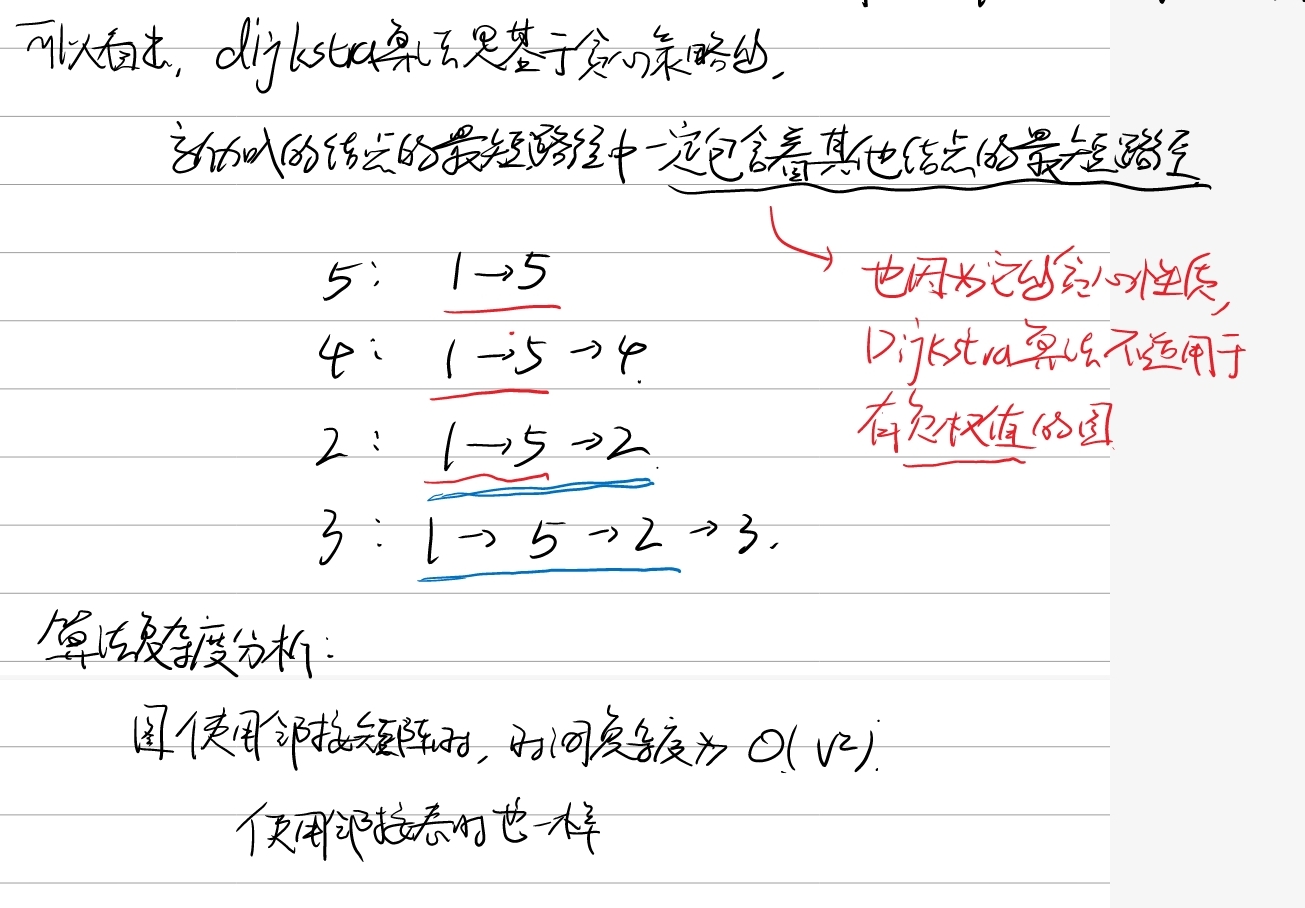 可以看出, dijkstra算法是基于贪心策略的,
新加入的结点的最短路径中一定包含着其他结点的最短路径
5: 1→5
也因为它的贪心性质,
4: 1→5→4.
Dijkstra算法不适用于
有负权值的图
2: 1→5→2.
3: 1→5→2→3.
算法复杂度分析:
图使用邻接矩阵时, 时间复杂度为 O(V²).
使用邻接表时也一样